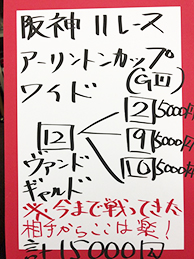 阪神11レース
アーリントンカップ
(GⅢ)
ワイド
2 5000円
12 9 5000円
10 5000円
ヴァンド
ギャルド
※今まで戦ってきた
相手からここは楽!
計15000円